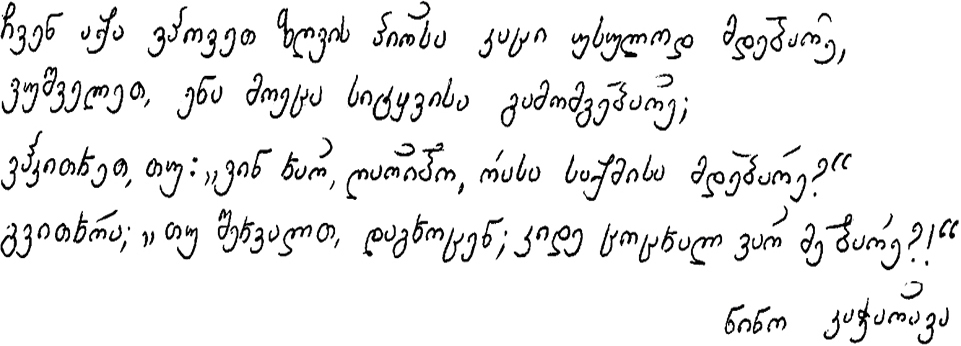 ჩვენ აქა ვპოვეთ ზღვის პირსა კაცი უსულოდ მდებარე,
ვუშველეთ, ენა მოეცა სიტყვისა გამომგებარე;
ვჰკითხეთ, თუ: „ვინ ხარ, ღარიბო, რასა საქმისა მდებარე?“
გვითხრა; „თუ შეხვალთ, დაგხოცენ; კიდე ცოცხალ ვარ მე ბარე?!“
ნინო კაჭარავა